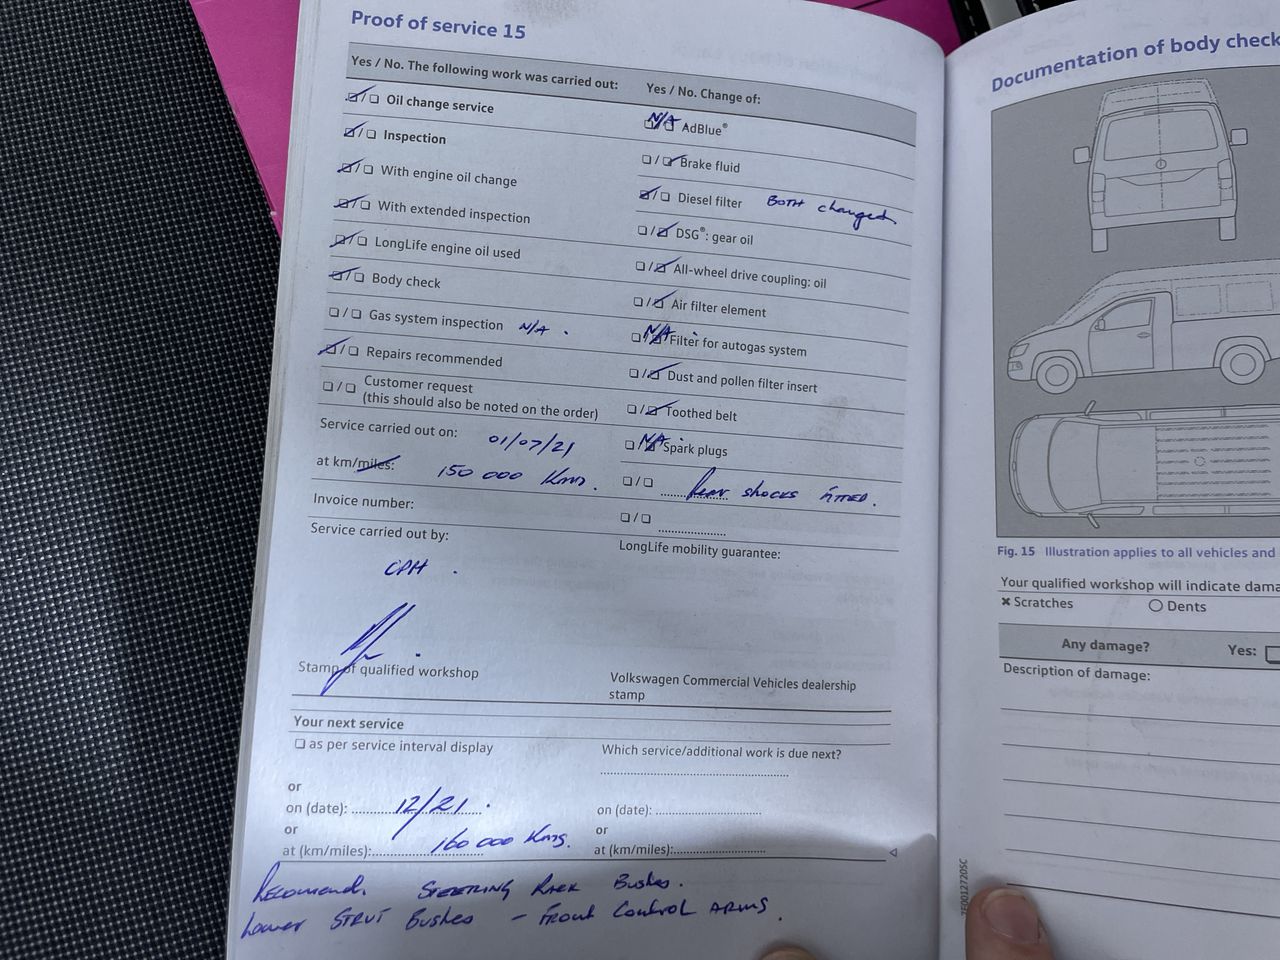 Proof of service 15
Yes / No. The following work was carried out:
☑/☐ Oil change service
☑/☐ Inspection
☑/☐ With engine oil change
☑/☐ With extended inspection
☑/☐ LongLife engine oil used
☑/☐ Body check
☐/☐ Gas system inspection N/A .
☑/☐ Repairs recommended
☐/☐ Customer request
(this should also be noted on the order)
Service carried out on: 01/07/21
at km/miles: 150 000 Kms.
Invoice number:
Service carried out by:
CPH .
Stamp of qualified workshop
Yes / No. Change of:
N/A AdBlue®
☐/☑ Brake fluid
☑/☐ Diesel filter BOTH changed
☐/☑ DSG®: gear oil
☐/☑ All-wheel drive coupling: oil
☐/☑ Air filter element
N/A Filter for autogas system
☐/☑ Dust and pollen filter insert
☐/☑ Toothed belt
N/A Spark plugs
☐/☐ Rear shocks fitted.
☐/☐ ....................
LongLife mobility guarantee:
Volkswagen Commercial Vehicles dealership
stamp
Your next service
☐ as per service interval display
or
on (date): 12/21 .
or
at (km/miles): 160 000 Kms.
Which service/additional work is due next?
on (date):
or
at (km/miles):
Recomend STEERING RACK Bushes.
Lower STRUT Bushes - Front Control ARMS.
Documentation of body check
Fig. 15 Illustration applies to all vehicles and
Your qualified workshop will indicate dama
✖ Scratches ○ Dents
Any damage? Yes: ☐
Description of damage: